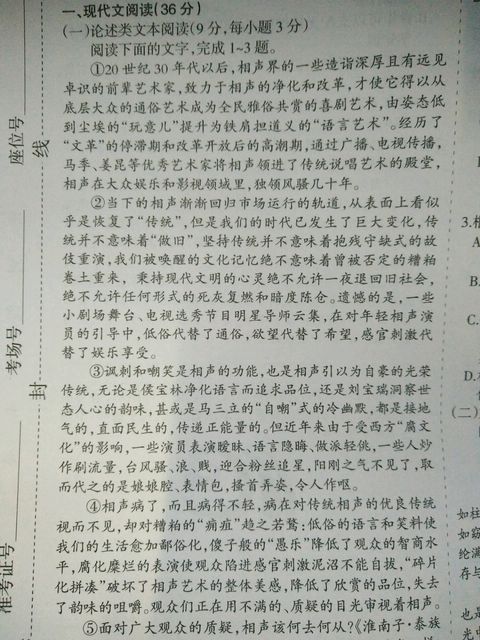 一、现代文阅读(36分)
(一)论述类文本阅读(9分,每小题3分)
阅读下面的文字,完成1~3题。
①20世纪30年代以后,相声界的一些造诣深厚且有远见
卓识的前辈艺术家,致力于相声的净化和改革,才使它得以从
底层大众的通俗艺术成为全民雅俗共赏的喜剧艺术,由姿态低
到尘埃的“玩意儿”提升为铁肩担道义的“语言艺术”。经历了
“文革”的停滞期和改革开放后的高潮期,通过广播、电视传播,
马季、姜昆等优秀艺术家将相声领进了传统说唱艺术的殿堂,
相声在大众娱乐和影视领域里,独领风骚几十年。
②当下的相声渐渐回归市场运行的轨道,从表面上看似
乎是恢复了“传统”,但是我们的时代已发生了巨大变化,传
统并不意味着“做旧”,坚持传统并不意味着抱残守缺式的故
伎重演,我们被唤醒的文化记忆绝不意味着曾被否定的糟粕
卷土重来,秉持现代文明的心灵绝不允许一夜退回旧社会,
绝不允许任何形式的死灰复燃和暗度陈仓。遗憾的是,一些
小剧场舞台、电视选秀节目明星导师云集,在对年轻相声演
员的引导中,低俗代替了通俗,欲望代替了希望,感官刺激代
替了娱乐享受。
③讽刺和嘲笑是相声的功能,也是相声引以为自豪的光荣
传统,无论是侯宝林净化语言而追求品位,还是刘宝瑞洞察世
态人心的韵味,甚或是马三立的“自嘲”式的冷幽默,都是接地
气的,直面民生的,传递正能量的。但近年来由于受西方“腐文
化”的影响,一些演员表演暧昧、语言隐晦、做派轻佻,一些人炒
作刷流量,台风骚、浪、贱,迎合粉丝追星,阳刚之气不见了,取
而代之的是娘娘腔、表情包,搔首弄姿,令人作呕。
④相声病了,而且病得不轻,病在对传统相声的优良传统
视而不见,却对糟粕的“痈疽”趋之若鹜:低俗的语言和笑料使
我们的生活愈加鄙俗化,傻子般的“愚乐”降低了观众的智商水
平,腐化糜烂的表演使观众陷进感官刺激泥沼不能自拔,“碎片
化拼凑”破坏了相声艺术的整体美感,降低了欣赏的品位,失去
了韵味的咀嚼。观众们正在用不满的、质疑的目光审视着相声。
⑤面对广大观众的质疑,相声该何去何从?《淮南子·泰族
座位号
线
考场号
封
准考证号
3.根
A
B.
C.
D.
(二)
如柱
如窈
纶满
存与
也是